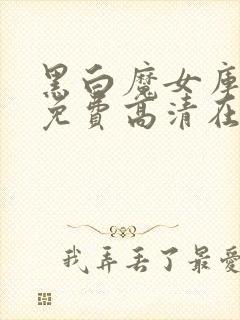 黑白魔女库
免费高清在
我弄丢了最爱